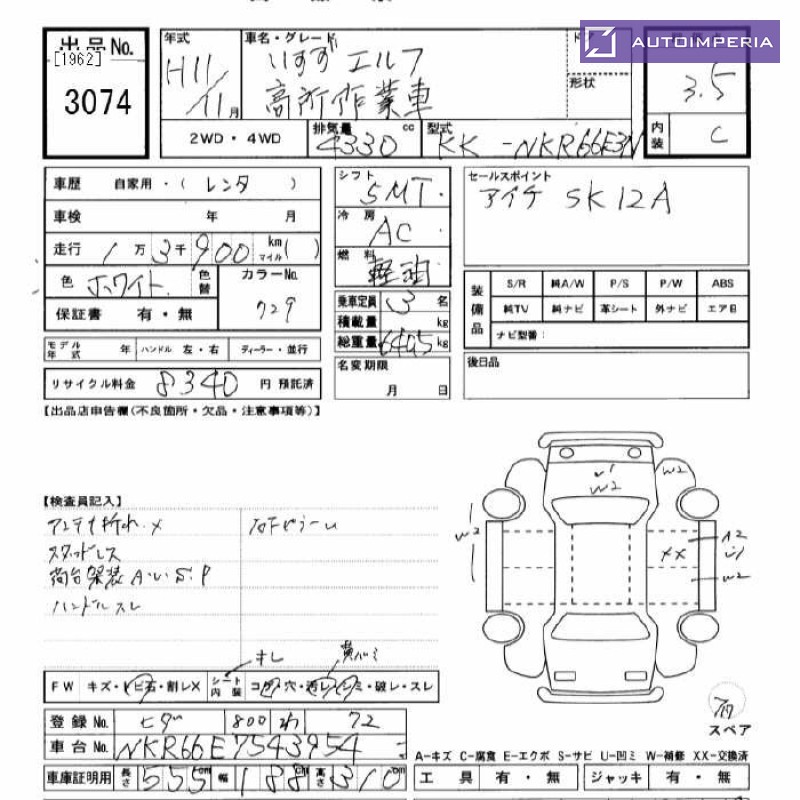 出品No.
[1962]
3074
年式
H11/11月
車名・グレード
いすゞ エルフ
高所作業車
ドア
形状
AUTOIMPERIA
3.5
内装
C
2WD・4WD
排気量
4330 cc
型式
KK-NKR66E3N
車歴 自家用・( レンタ )
車検 年 月
走行 1万3千900 km マイル( )
色 ホワイト 色替
カラーNo.
729
保証書 有・無
シフト
5MT
冷房
AC
燃料
軽油
乗車定員 3 名
積載量 kg
総重量 6405 kg
名変期限
月 日
セールスポイント
アイチ SK12A
装備品
S/R 純A/W P/S P/W ABS
純TV 純ナビ 革シート 外ナビ エアB
ナビ型番:
後日品
モデル年式 年 ハンドル 左・右 ディーラー・並行
リサイクル料金 8340 円 預託済
【出品店申告欄(不良箇所・欠品・注意事項等)】
【検査員記入】
アンテナ折れ.×
スタッドレス
荷台架装 A.U.S.P
ハンドルスレ
W2
W2
W2
XX
A2
W2
キレ
FW キズ・トビ石・割レX
シート内装
コゲ・穴・汚レ・シミ・破レ・スレ
スペア
登録No. 800 わ 72
車台No. NKR66E7543954
車庫証明用 長さ 555cm 幅 188cm 高さ 310cm
A-キズ C-腐食 E-エクボ S-サビ U-凹ミ W-補修 XX-交換済
工具 有・無 ジャッキ 有・無